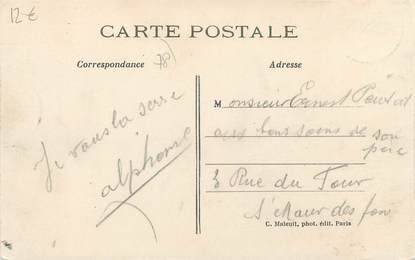 12 €
CARTE POSTALE
Correspondance
(78)
Adresse
Je vous la serre
alphonse
Monsieur Ernest
aux bons soins de son
père
3 Rue du Four
St Maur des fossés
C. Malcuit, phot. édit. Paris